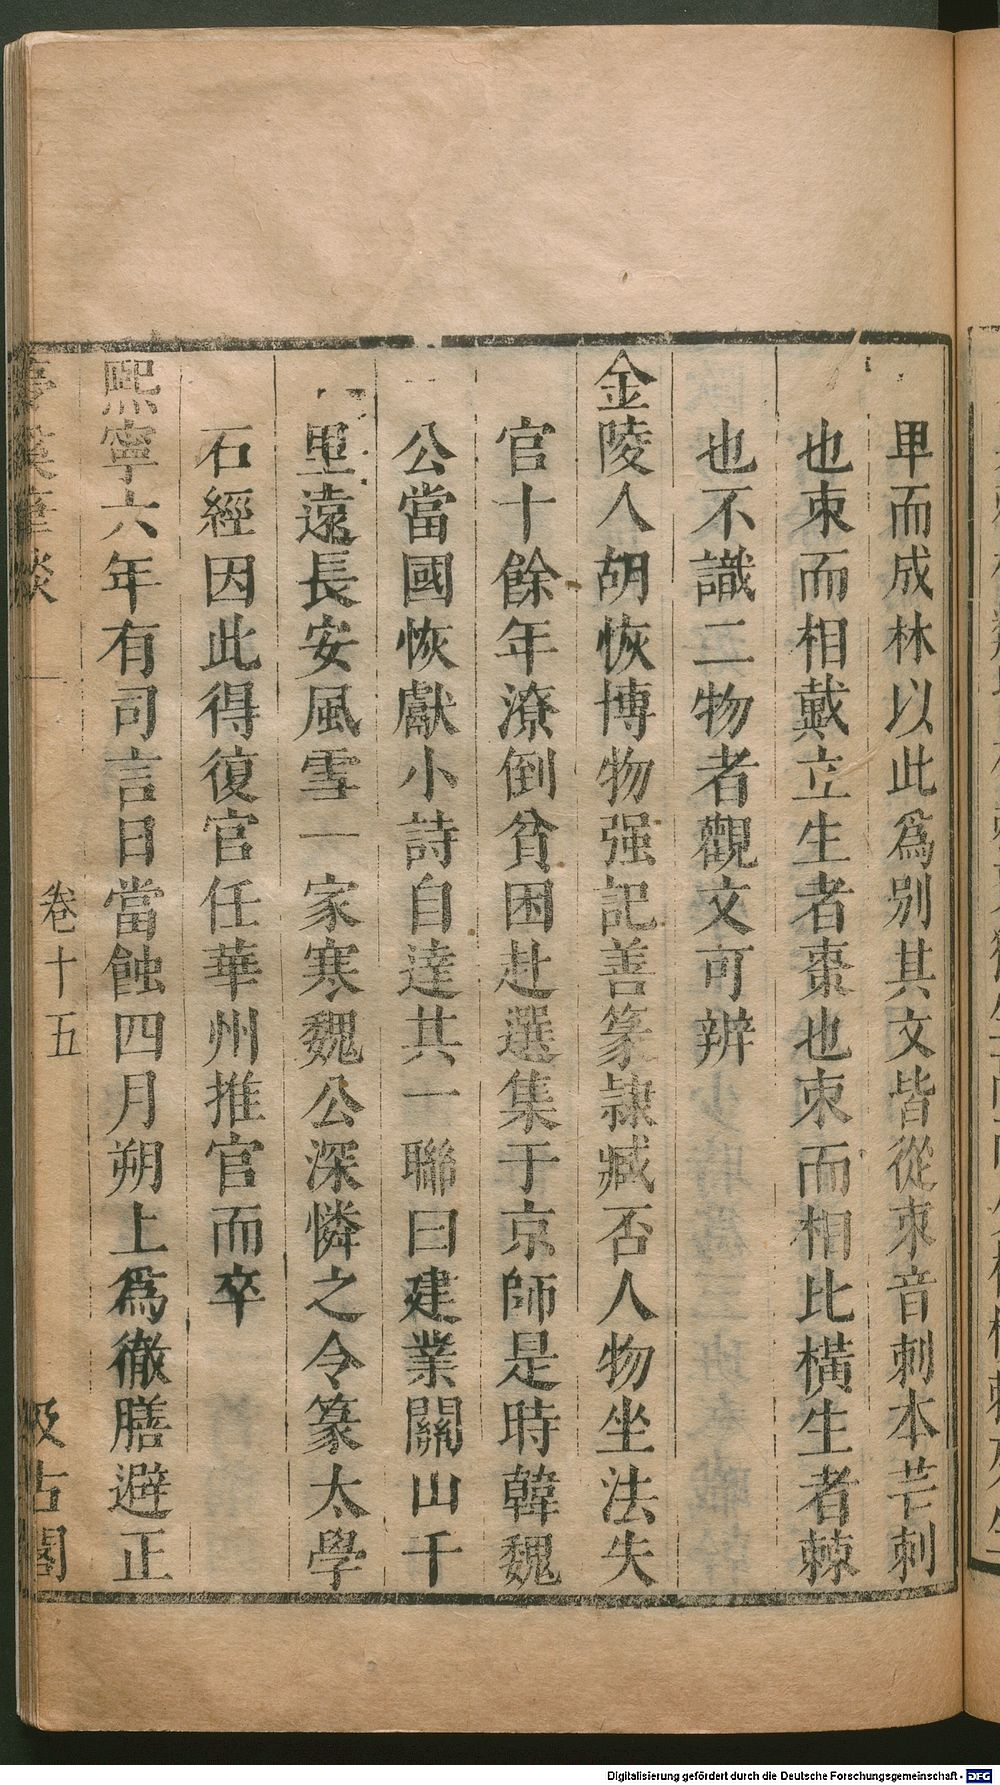 卑而成林以此爲別其文皆從朿音刺本芒刺
也朿而相戴立生者棗也朿而相比橫生者棘
也不識二物者觀文可辨
金陵人胡恢博物强記善篆隸臧否人物坐法失
官十餘年潦倒貧困赴選集于京師是時韓魏
公當國恢獻小詩自達其一聯曰建業關山千
里遠長安風雪一家寒魏公深憐之令篆太學
石經因此得復官任華州推官而卒
熙寧六年有司言日當蝕四月朔上爲徹膳避正
夢溪筆談 卷十五 汲古閣
Digitalisierung gefördert durch die Deutsche Forschungsgemeinschaft - DFG